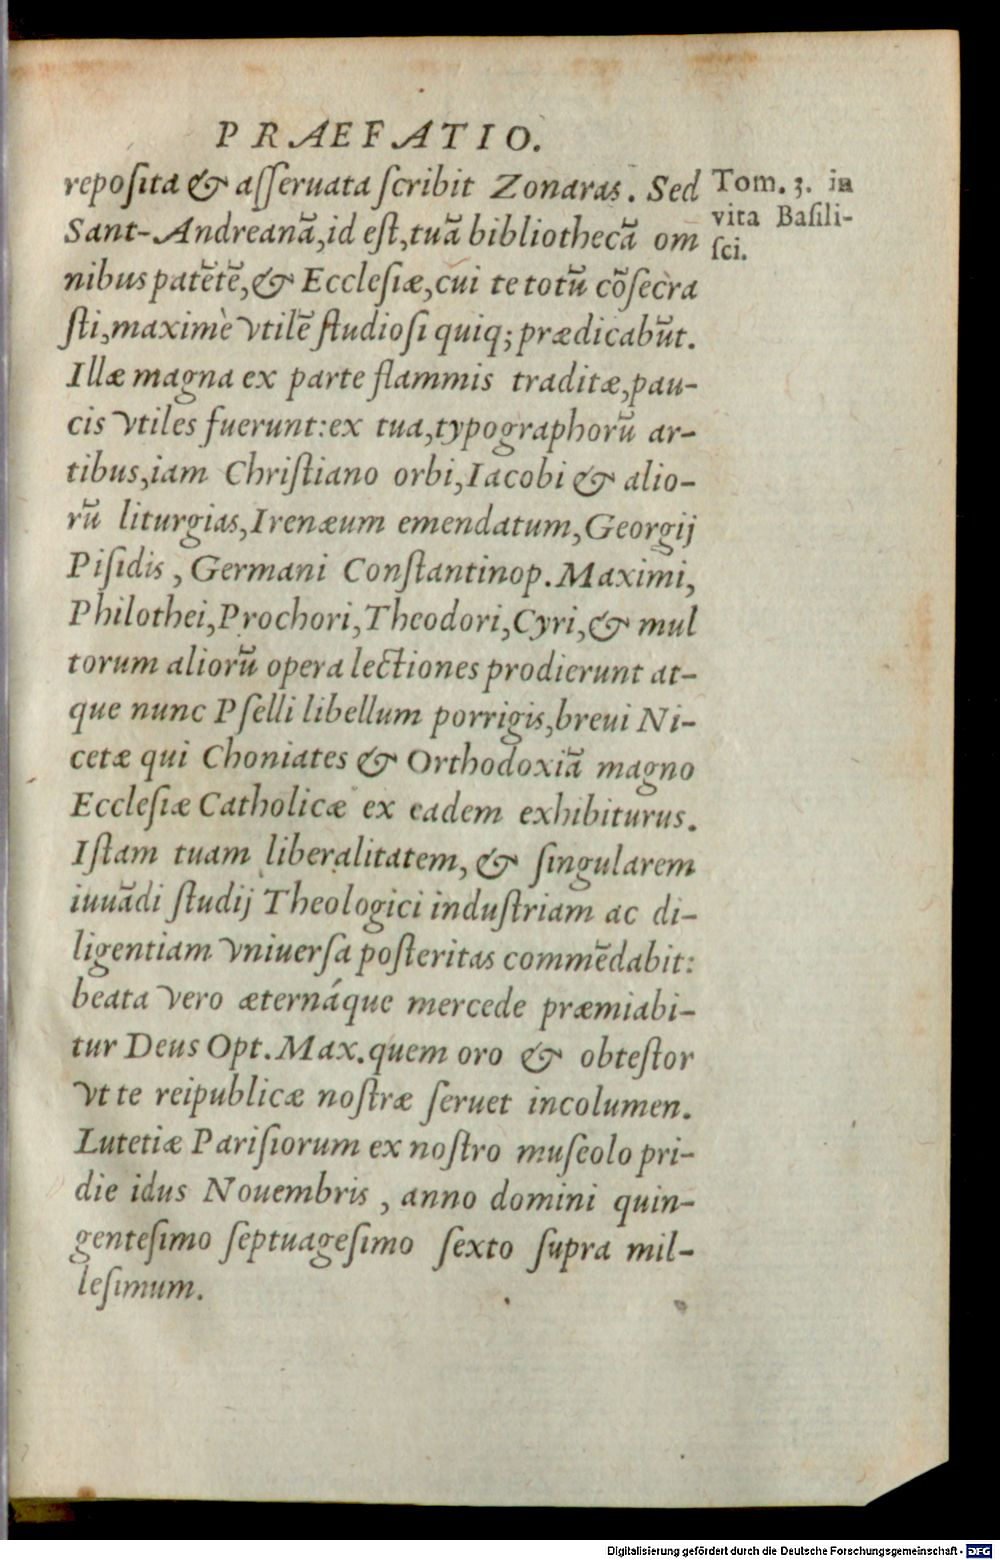 PRAEFATIO.
reposita & aſſeruata ſcribit Zonaras. Sed
Tom. 3. in
vita Baſili-
ſci.
Sant-Andreanã, id eſt, tuã bibliothecã om
nibus patẽtẽ, & Eccleſiæ, cui te totũ cõſecra
ſti, maximè vtilẽ ſtudioſi quiq; prædicabũt.
Illæ magna ex parte flammis traditæ, pau-
cis vtiles fuerunt: ex tua, typographorũ ar-
tibus, iam Chriſtiano orbi, Iacobi & alio-
rũ liturgias, Irenæum emendatum, Georgij
Piſidis, Germani Conſtantinop. Maximi,
Philothei, Prochori, Theodori, Cyri, & mul
torum aliorũ opera lectiones prodierunt at-
que nunc Pſelli libellum porrigis, breui Ni-
cetæ qui Choniates & Orthodoxiã magno
Eccleſiæ Catholicæ ex eadem exhibiturus.
Iſtam tuam liberalitatem, & ſingularem
iuuãdi ſtudij Theologici induſtriam ac di-
ligentiam vniuerſa poſteritas commẽdabit:
beata vero æternáque mercede præmiabi-
tur Deus Opt. Max. quem oro & obteſtor
vt te reipublicæ noſtræ ſeruet incolumen.
Lutetiæ Pariſiorum ex noſtro muſeolo pri-
die idus Nouembris, anno domini quin-
genteſimo ſeptuageſimo ſexto ſupra mil-
leſimum.
Digitalisierung gefördert durch die Deutsche Forschungsgemeinschaft - DFG